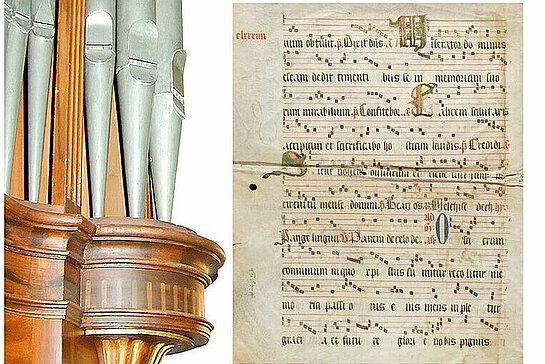 obtulit. p Dixit dns. a Miserator dominus
escam dedit timenti bus se in memoriam suo
rum mirabilium. p Confitebor. a Calicem salutaris
accipiam et sacrificabo ho stiam laudis. p Credidi. a
Sicut nouelle
circuitu mense domini. p Beati oms. Melchise dech.
Pange lingua. V Panem de celo de. O sa crum
conuiuium in quo xpi stus su mitur recolitur me
mo ria passi o nis e ius mens in ple tur
graci a et futu re glori e nobis pignus